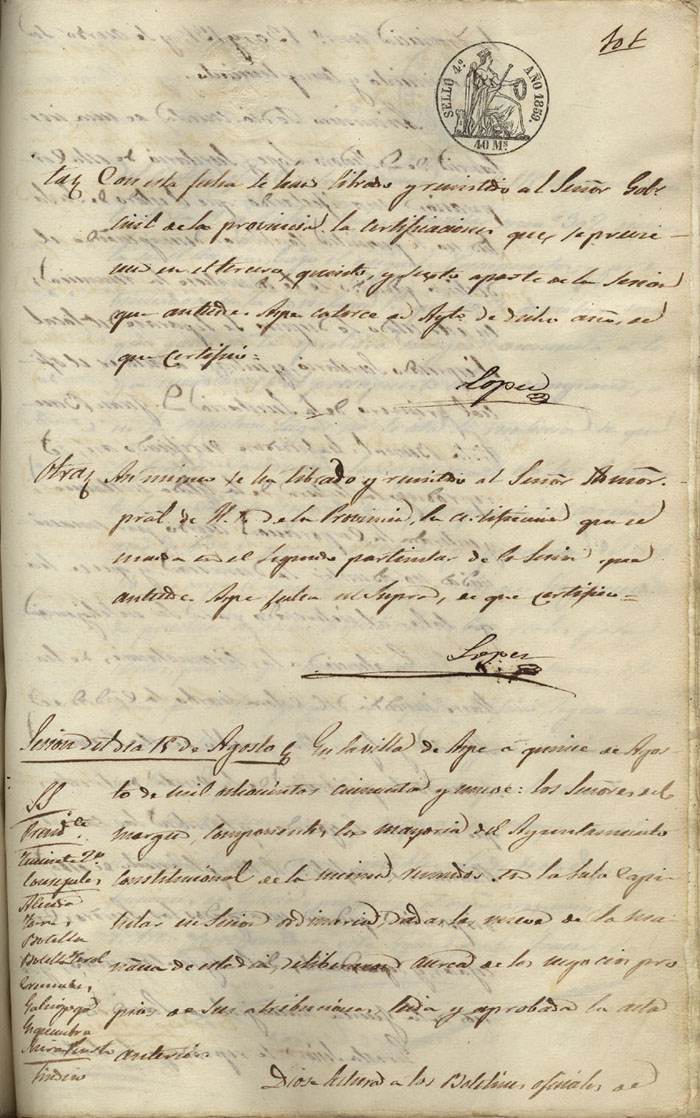 101
SELLO 4º AÑO 1859.
40 Ms.
Con esta fecha se han librado y remitido al Señor Gobr.
Civil de la provincia la certificaciones que se previe-
nen en el tercero, quinto, y sesto aparte de la Sesion
que antecede. Aspe catorce de Agto de dicho año, de
que certifico=
Lopez
Otra Asi mismo se ha librado y remitido al Señor Admor.
pral. de H. de la Provincia, la certificacion que se
manda en el segundo particular de la Sesion que
antecede. Aspe fecha ut Supra, de que certifico=
Lopez
Sesion del dia 15 de Agosto En la villa de Aspe á quince de Agos-
to de mil ochocientos cincuenta y nueve: los Señores del
margen, componentes la mayoria del Ayuntamiento
Constitucional de la misma reunidos en la Sala Capi-
tular en Sesion ordinaria, dadas las nueve de la ma-
ñana de este dia, deliberaron acerca de los negocios pro
pios de sus atribuciones, leida y aprobada la acta
anterior.
Diose lectura a los Boletines oficiales de
SS
Presidte.
Teniente 2º
Alcaràz
Botella
Botella
Cremades
Galinsoga
Mira
Sindico